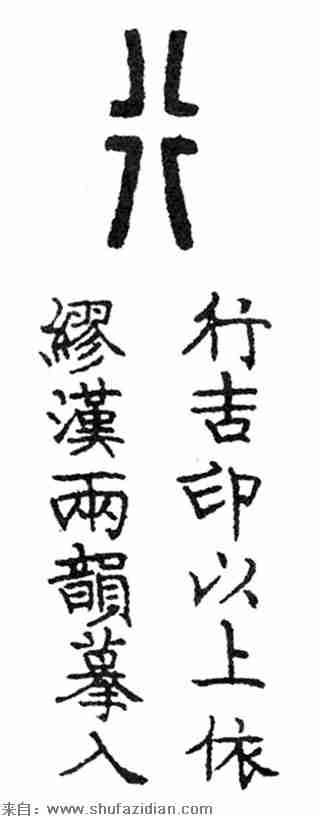 行
行吉印以上依
繆漢兩韻摹入
来自：www.shufazidian.com